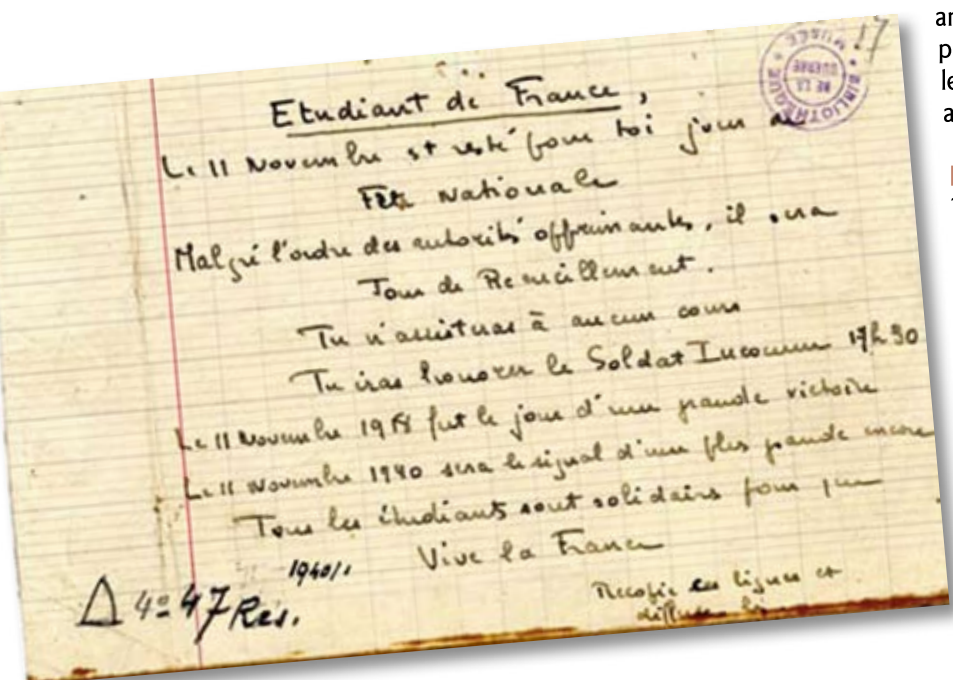 Etudiant de France,
Le 11 Novembre est resté pour toi jour de
Fête Nationale
Malgré l'ordre des autorités opprimantes, il sera
Jour de Recueillement.
Tu n'assisteras à aucun cours
Tu iras honorer le Soldat Inconnu 17h30
Le 11 Novembre 1918 fut le jour d'une grande victoire
Le 11 Novembre 1940 sera le signal d'une plus grande encore
Tous les étudiants sont solidaires pour que
Vive la France
Recopie ces lignes et
diffuse les
1940/1
Δ 4º 47 Res.
BIBLIOTHEQUE MUSÉE
DE LA
GUERRE